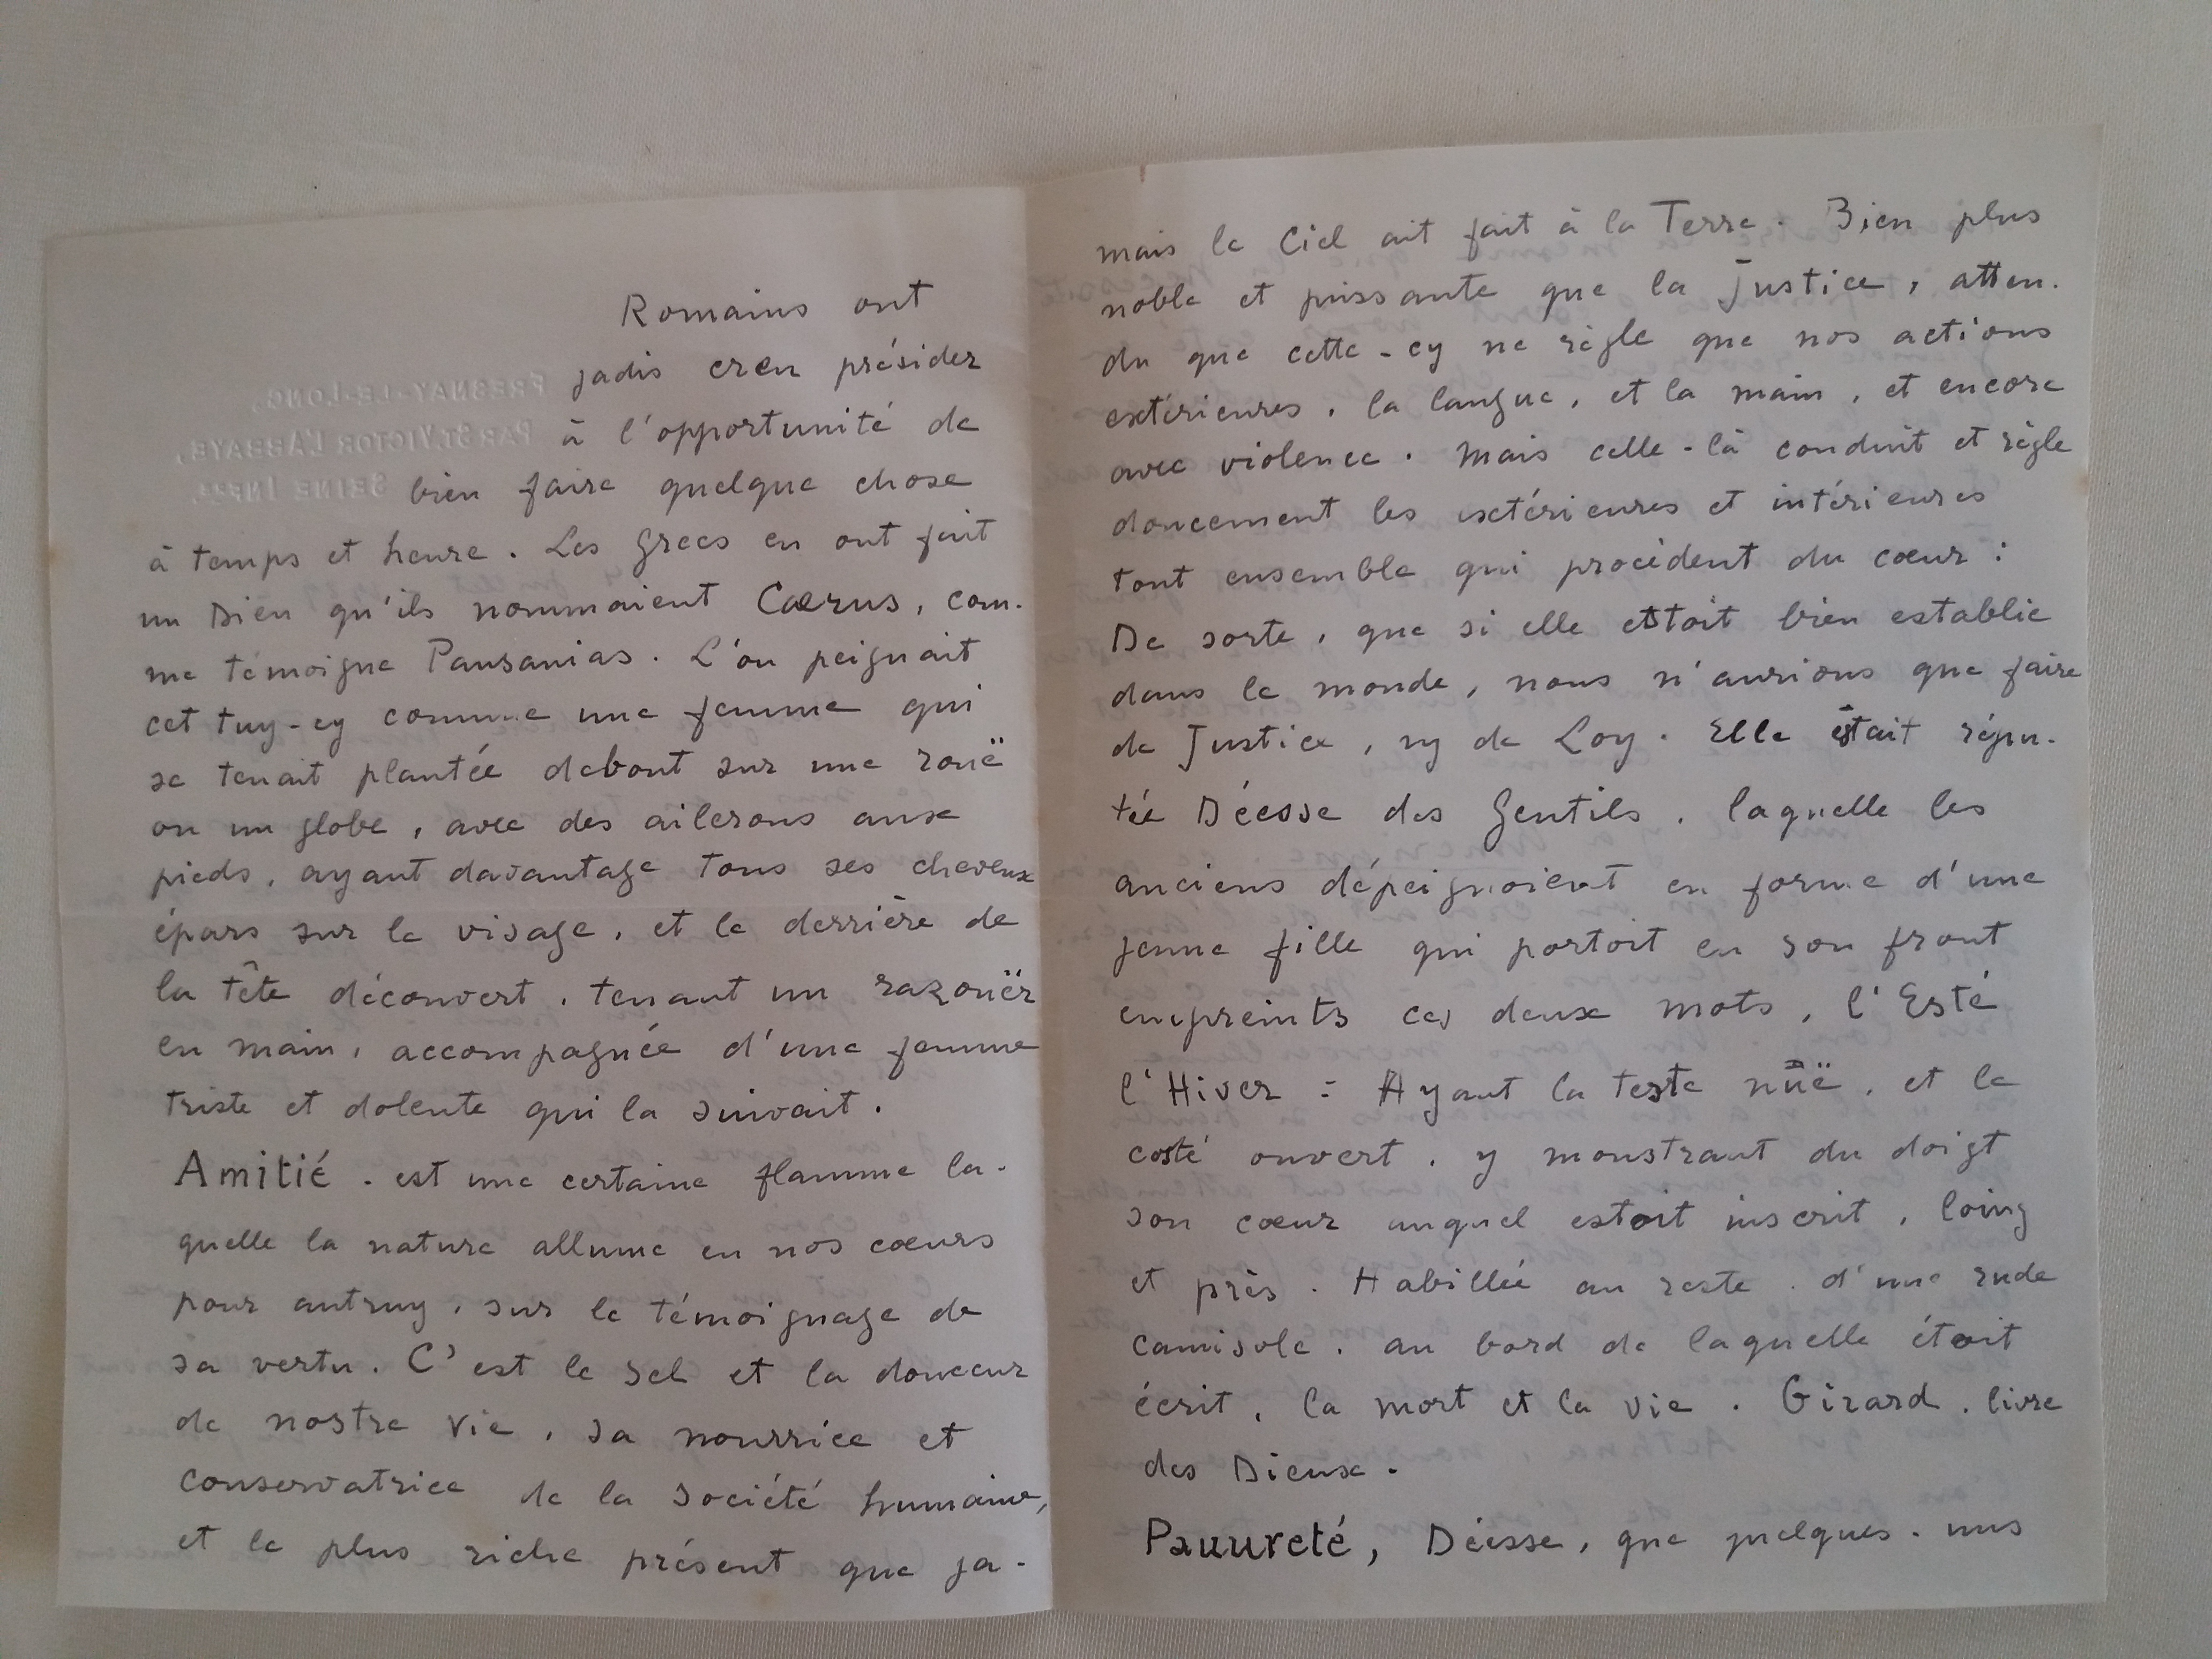 Romains ont
jadis creu présider
à l'opportunité de
bien faire quelque chose
à temps et heure. Les Grecs en ont fait
un Dieu qu'ils nommaient Cærus, com-
me témoigne Pausanias. L'on peignait
cet tuy-cy comme une femme qui
se tenait plantée debout sur une rouë
ou un globe, avec des ailerons aux
pieds, ayant davantage tous ses cheveux
épars sur le visage, et le derrière de
la tête découvert, tenant un razouër
en main, accompagnée d'une femme
triste et dolente qui la suivait.
Amitié. est une certaine flamme la-
quelle la nature allume en nos cœurs
pour autruy, sur le témoignage de
sa vertu. C'est le sel et la douceur
de nostre vie, sa nourrice et
conservatrice de la société humaine,
et le plus riche présent que ja-
mais le Ciel ait fait à la Terre. Bien plus
noble et puissante que la Justice, atten-
du que cette-cy ne règle que nos actions
extérieures, la langue, et la main, et encore
avec violence. Mais celle-là conduit et règle
doucement les extérieures et intérieures
tout ensemble qui procèdent du cœur :
De sorte, que si elle estoit bien establie
dans le monde, nous n'aurions que faire
de Justice, ny de Loy. Elle était répu-
tée Déesse des Gentils, laquelle les
anciens dépeignoient en forme d'une
jeune fille qui portoit en son front
empreints ces deux mots, l'Esté
l'Hiver : Ayant la teste nüë, et le
costé ouvert, y monstrant du doigt
son cœur auquel estoit inscrit, loing
et près. Habillée au reste d'une rude
camisole, au bord de laquelle étoit
écrit, la mort et la vie. Girard, livre
des Dieux.
Pauureté, Déesse, que quelques-uns
FRESNAY-LE-LONG,
PAR ST. VICTOR L'ABBAYE,
SEINE INFRE.